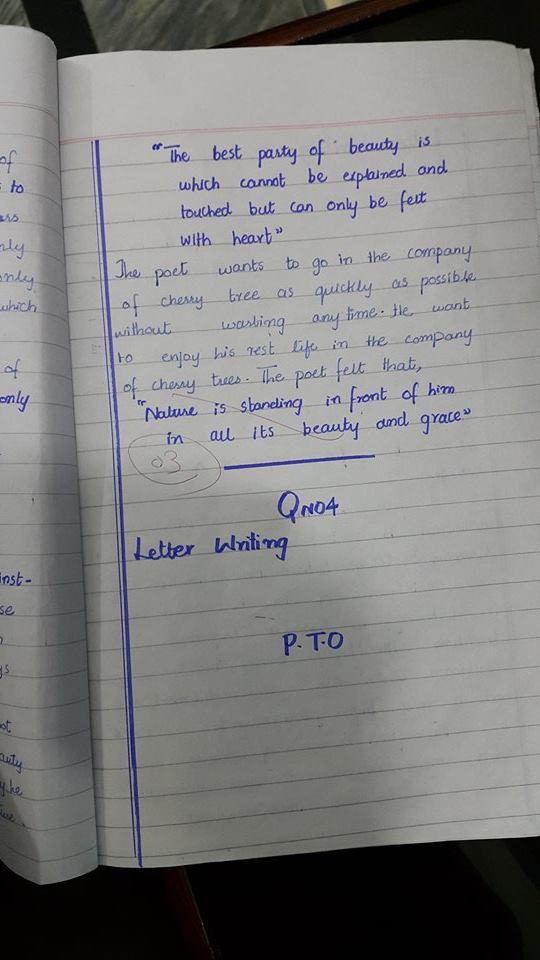 of
to
ers
nly
only
which
of
only
inst-
se
ys
ot
auty
y he
"The best party of beauty is
which cannot be explained and
touched but can only be felt
with heart"
The poet wants to go in the company
of cherry tree as quickly as possible
without wasting any time. He want
to enjoy his rest life in the company
of cherry trees. The poet felt that,
"Nature is standing in front of him
in all its beauty and grace"
03
QNO4
Letter Writing
P.T.O